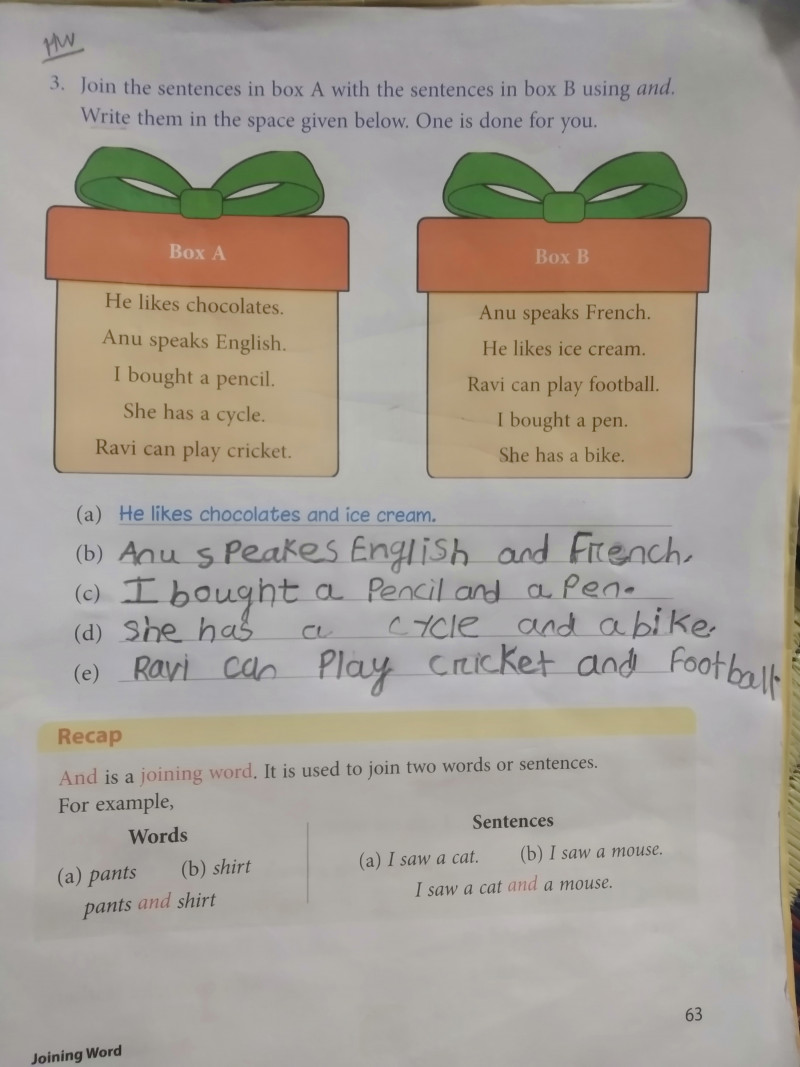 HW
3. Join the sentences in box A with the sentences in box B using and.
Write them in the space given below. One is done for you.
Box A
He likes chocolates.
Anu speaks English.
I bought a pencil.
She has a cycle.
Ravi can play cricket.
Box B
Anu speaks French.
He likes ice cream.
Ravi can play football.
I bought a pen.
She has a bike.
(a) He likes chocolates and ice cream.
(b) Anu speakes English and French.
(c) I bought a Pencil and a Pen.
(d) She has a cycle and a bike.
(e) Ravi can Play cricket and Football.
Recap
And is a joining word. It is used to join two words or sentences.
For example,
Words
(a) pants (b) shirt
pants and shirt
Sentences
(a) I saw a cat. (b) I saw a mouse.
I saw a cat and a mouse.
63
Joining Word